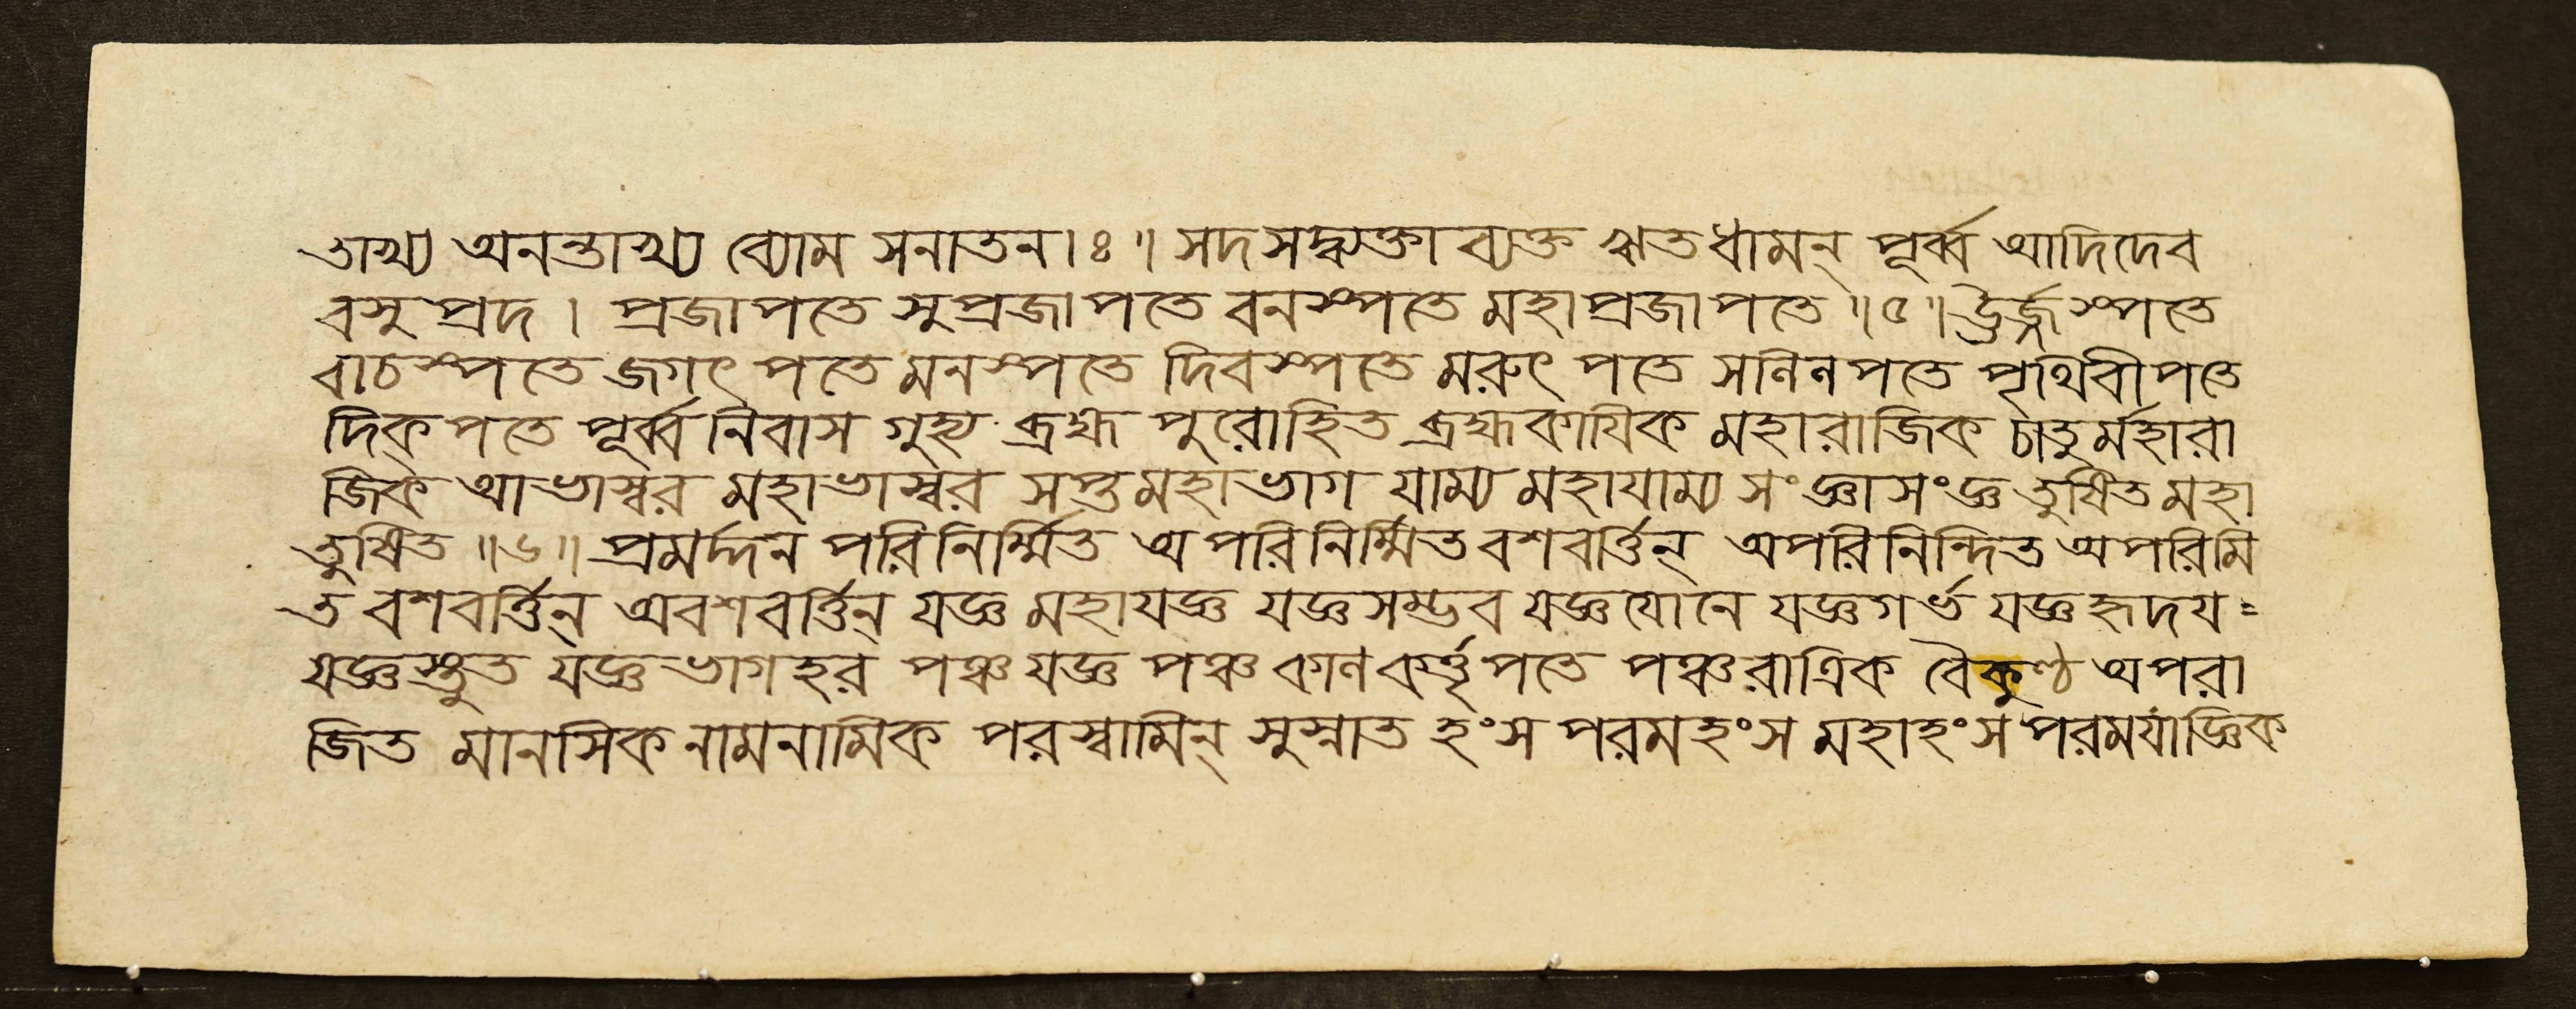 তাখ্য অনন্তাখ্য ব্যোম সনাতন।ঃ॥ সদসদ্ব্যক্তাব্যক্ত ঋতধামন্ পূর্ব্ব আদিদেব
বসুপ্রদ । প্রজাপতে সুপ্রজাপতে বনস্পতে মহাপ্রজাপতে ॥৫॥ ঊর্জ্জস্পতে
বাচস্পতে জগৎপতে মনস্পতে দিবস্পতে মরুৎপতে সলিলপতে পৃথিবীপতে
দিক্পতে পূর্ব্বনিবাস গুহ্য ব্রহ্মপুরোহিত ব্রহ্মকাযিক মহারাজিক চাতুর্মহারা
জিক আভাস্বর মহাভাস্বর সপ্তমহাভাগ যাম্য মহাযাম্য সংজ্ঞাসংজ্ঞ তুষিত মহা
তুষিত ॥৬॥ প্রমর্দ্দন পরিনির্ম্মিত অপরিনির্ম্মিত বশবর্ত্তিন্ অপরিনিন্দিত অপরিমি
ত বশবর্ত্তিন্ অবশবর্ত্তিন্ যজ্ঞ মহাযজ্ঞ যজ্ঞসম্ভব যজ্ঞযোনে যজ্ঞগর্ভ যজ্ঞহৃদয=
যজ্ঞস্তুত যজ্ঞভাগহর পঞ্চযজ্ঞ পঞ্চকালকর্ত্তৃপতে পঞ্চরাত্রিক বৈকুণ্ঠ অপরা
জিত মানসিক নামনামিক পরস্বামিন্ সুস্নাত হংস পরমহংস মহাহংস পরমযাজ্ঞিক